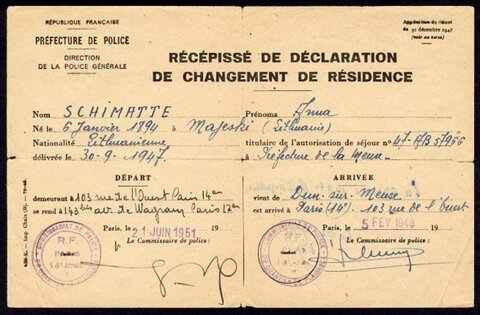 RÉPUBLIQUE FRANÇAISE
PRÉFECTURE DE POLICE
DIRECTION
DE LA POLICE GÉNÉRALE
Application du décret
du 31 décembre 1947
(voir au verso)
RÉCÉPISSÉ DE DÉCLARATION
DE CHANGEMENT DE RÉSIDENCE
Nom SCHIMATTE Prénoms Anna
Né le 6 Janvier 1894 à Majeski (Lithuanie)
Nationalité Lithuanienne titulaire de l'autorisation de séjour n° 47. RB 57966
délivrée le 30-9-1947 à Préfecture de la Meuse
DÉPART
demeurant à 103 rue de l'Ouest Paris 14em
se rend à 143 bis av. de Wagram Paris 17em
Paris, le 21 JUIN 1951 19
Le Commissaire de police :
R.F.
Cachet
ARRIVÉE
vient de Dun-sur-Meuse
est arrivé à Paris (14e). 103 rue de l'Ouest
Paris, le 5 FEV 1948 19
Le Commissaire de police :
R.F.
Cachet